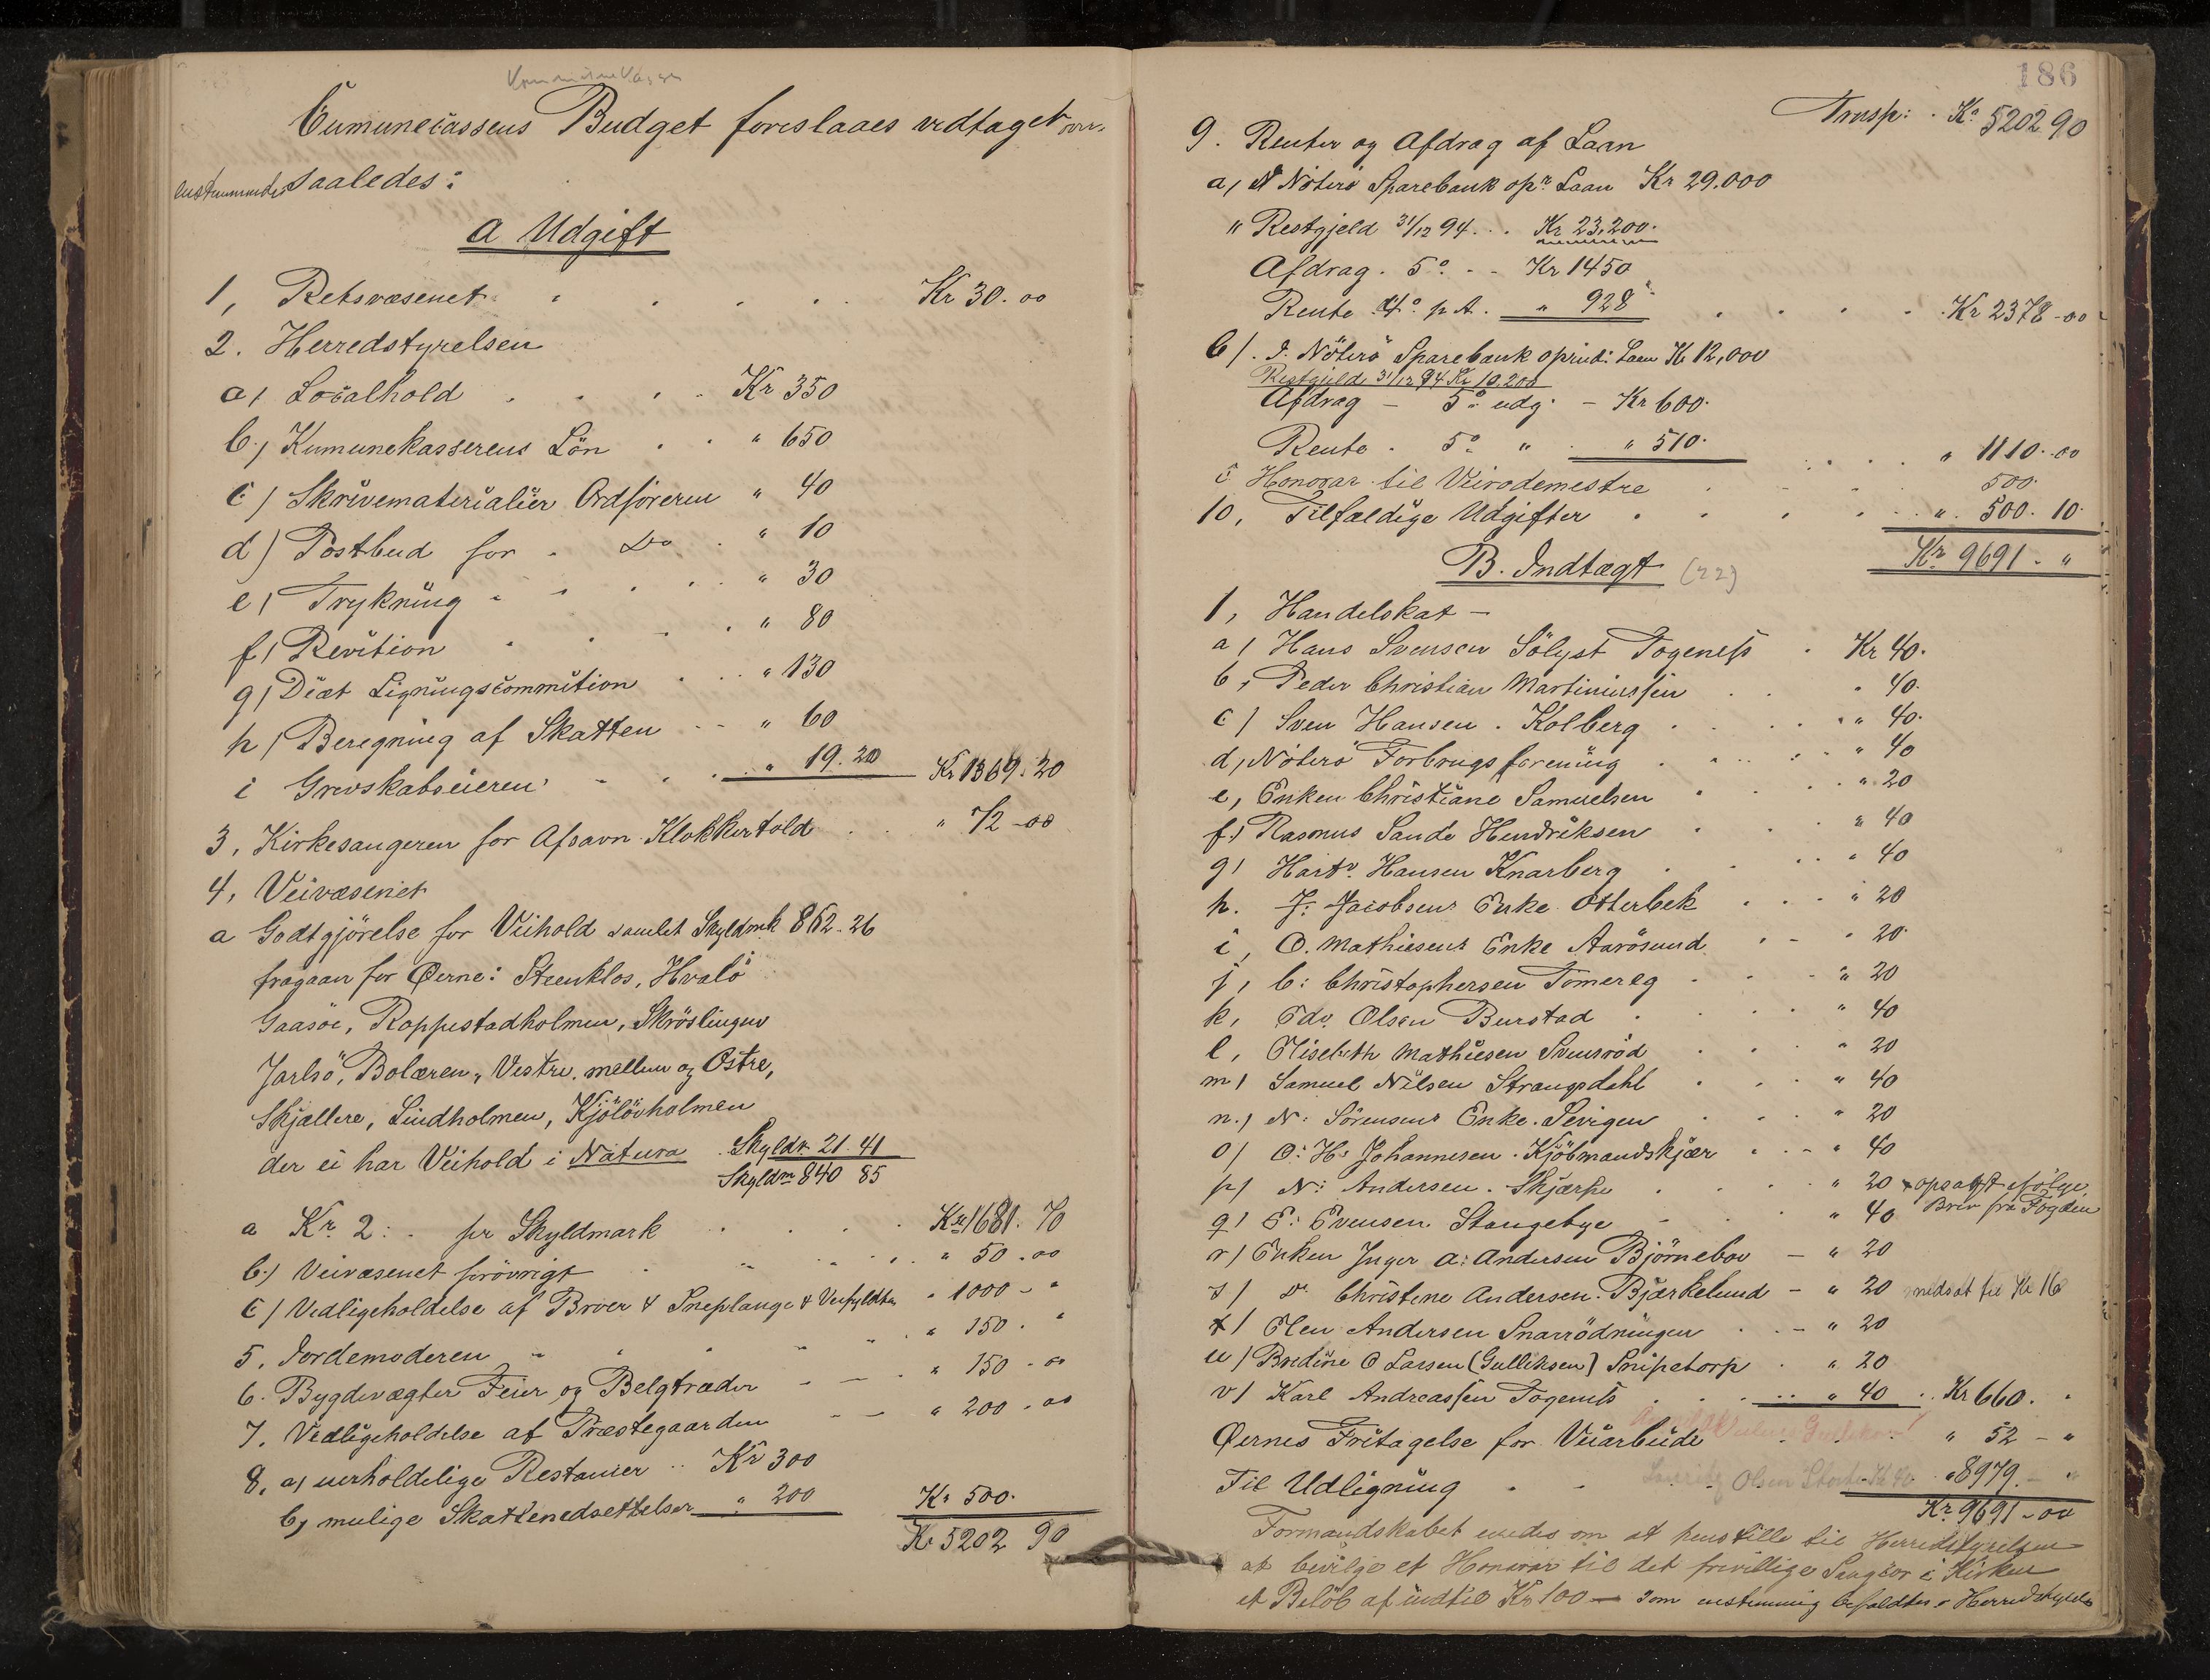 Cumunecassens Budget foreslaaes vedtaget
enstemmende saaledes:
a Udgift
1, Retsvæsenet Kr 30.00
2. Herredstyrelsen
a, Localhold Kr 350
b., Kumunekasserens Lön " 650
c) Skrivematerialier Ordföreren " 40
d) Postbud for Do " 10
e) Trykning " 30
f) Revition " 80
g) Diæt Ligningscommition " 130
h) Beregning af Skatten " 60
i Grevskabseieren " 19.20 Kr 1369.20
3, Kirkesangeren for Afsavn Klokkertold " 72-00
4, Veivæsenet
a Godtgjörelse for Veihold samlet Skyldmk 862-26
fragaar for Øerne: Steenklos, Hvalö
Gaasöe, Roppestadholmen, Skröslingen
Jarlsö, Bolæren, Vestre, mellem og Østre,
Skjællere, Lindholmen, Kjölöholmen
der ei har Veihold i Natura Skyldm 21.41
Skyldm 840 85
a Kr. 2: pr Skyldmark Kr 1681.70
b.) Veivæsenet forövrigt " 50.00
c) Vedligeholdelse af Broer & Sneplange & Veifyldte " 1000 - "
5, Jordemoderen " 150 . "
6. Bygdevægter Feier og Belgtræder " 150 - 00
7. Vedligeholdelse af Præstegaarden " 200 - 00
8, a) uerholdelige Restancer Kr 300
b) mulige Skattenedsettelser " 200 Kr 500.
Kr 5202 90
186
Trnsp: Kr 5202 90
9. Renter og Afdrag af Laan
a, N Nöterö Sparebank opr. Laan Kr 29.000
" Restgjeld 31/12 94 Kr 23,200.
Afdrag. 5% - Kr 1450
Rente 4% p A. " 928 Kr 2378-00
b). I. Nöterö Sparebank oprind: Laan Kr 12,000
Restgjeld 31/12 94 Kr 10.200
Afdrag - 5% udg. - Kr 600.
Rente. 5% " " 510. " 1110-00
c Honorar til Veirodemestre 500.
10, Tilfældige Udgifter " 500. 10.
Kr 9691 - "
B. Indtægt (22)
1, Handelskat -
a) Hans Svensen Sölyst Togeness Kr 40.
b, Peder Christian Martiniussen " 40.
c) Sven Hansen. Kolberg " 40.
d, Nöterö Forbrugsforening " 40
e, Enken Christiane Samuelsen " 20
f.) Rasmus Sande Hendriksen " 40
g) Hartv. Hansen Knarberg " 40
h. J. Jacobsens Enke Otterbek " 20
i, O. Mathiesens Enke Aarösund " 20.
j, C: Christophersen Tömereg " 20
k, Edv. Olsen Burstad " 40
l, Elisebeth Mathisen Svensröd " 20
m) Samuel Nilsen Strangsdahl " 40
n.) N: Sörensens Enke. Sevigen " 20
o) O: H: Johannesen. Kjöbmandskjær " 40
p) N: Andersen. Skjærpe " 20 opsagt ifölge
q) E: Evensen Stangebye " 40 Brev fra Fogden
r) Enken Inger A: Andersen Björnebov - " 20
s) Do Christine Andersen. Bjærkelund - " 20 nedsat til Kr 16
t) Elen Andersen Snarrödningen - " 20
u) Bredine O Larsen (Gulliksen) Snipetorp " 20
v) Karl Andreassen Togeness " 40 Kr 660.
Øernes Fritagelse for Veiarbeide " 52 - "
Til Udligning Olsen " 8979 - "
Kr. 9691-00
Formandskabet enedes om at henstille til Herredstyrelsen
at bevilge et Honorar til det frivillige Sangkor i Kirken
et Belöb af indtil Kr 100 - som enstemmig Herredstyrelse